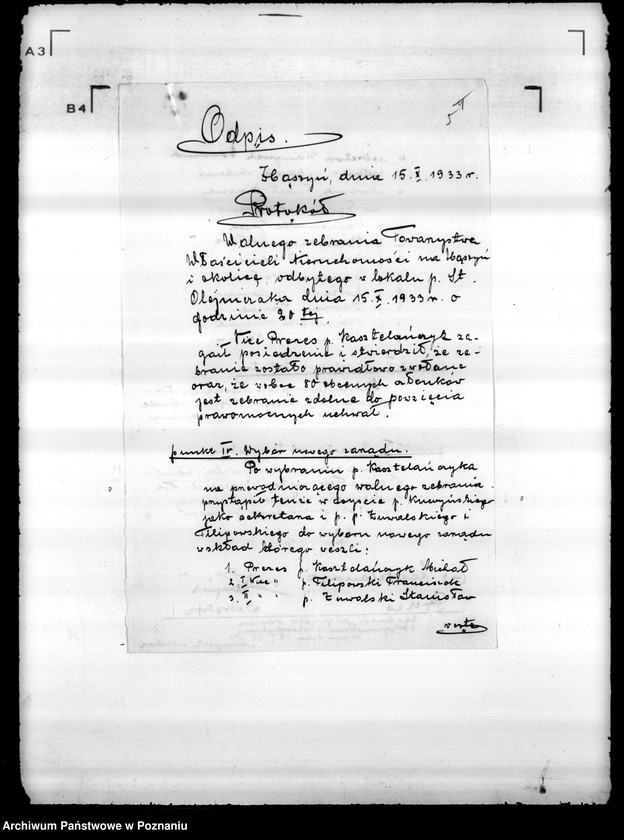 A3
B4
5
Odpis.
Zbąszyń, dnia 15.X.1933 r.
Protokół
Walnego zebrania Towarzystwa
Właścicieli Nieruchomości na Zbąszyń
i okolicę, odbytego w lokalu p. St.
Olejniczaka dnia 15.X.1933 r. o
godzinie 20 tej.
Vize Prezes p. Kasztelańczyk za-
gaił posiedzenie i stwierdził, że ze-
branie zostało prawidłowo zwołane
oraz, że wobec 80 obecnych członków
jest zebranie zdolne do powzięcia
prawomocnych uchwał.
punkt IV. Wybór nowego zarządu.
Po wybraniu p. Kasztelańczyka
na przewodniczącego walnego zebrania
przystąpił tenże w asyście p.
jako sekretarza i p. p. Żuwalskiego i
Filipowskiego do wyboru nowego zarządu
w skład którego weszli:
1. Prezes p. Kasztelańczyk Michał
2. I Vice " p. Filipowski Franciszek
3. II " " p. Żuwalski Stanisław
verte
Archiwum Państwowe w Poznaniu